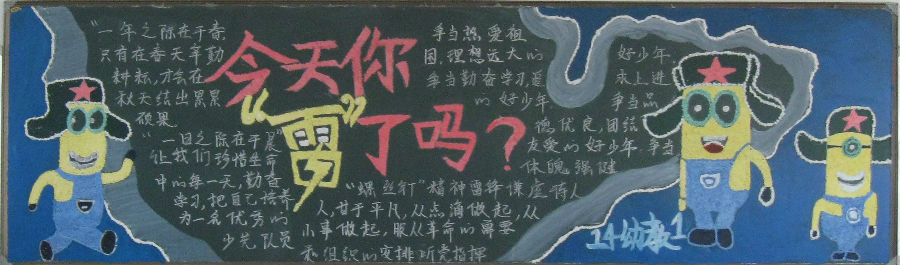 一年之际在于春
只有在春天辛勤
耕耘,才会在
秋天结出累累
硕果
"一日之际在于晨"
让我们珍惜生命
中的每一天,勤奋
学习,把自己培养
为一名优秀的
少先队员
今天你
"雷"了吗?
争当热爱祖
国,理想远大的
争当勤奋学习,
的好少年.
好少年.
求上进
争当品
德优良,团结
友爱的好少年.争当
体魄强健
"螺丝钉"精神雷锋
人,甘于平凡,从点滴做起,从
小事做起,服从革命的需要
和组织的安排听党指挥
14幼教1